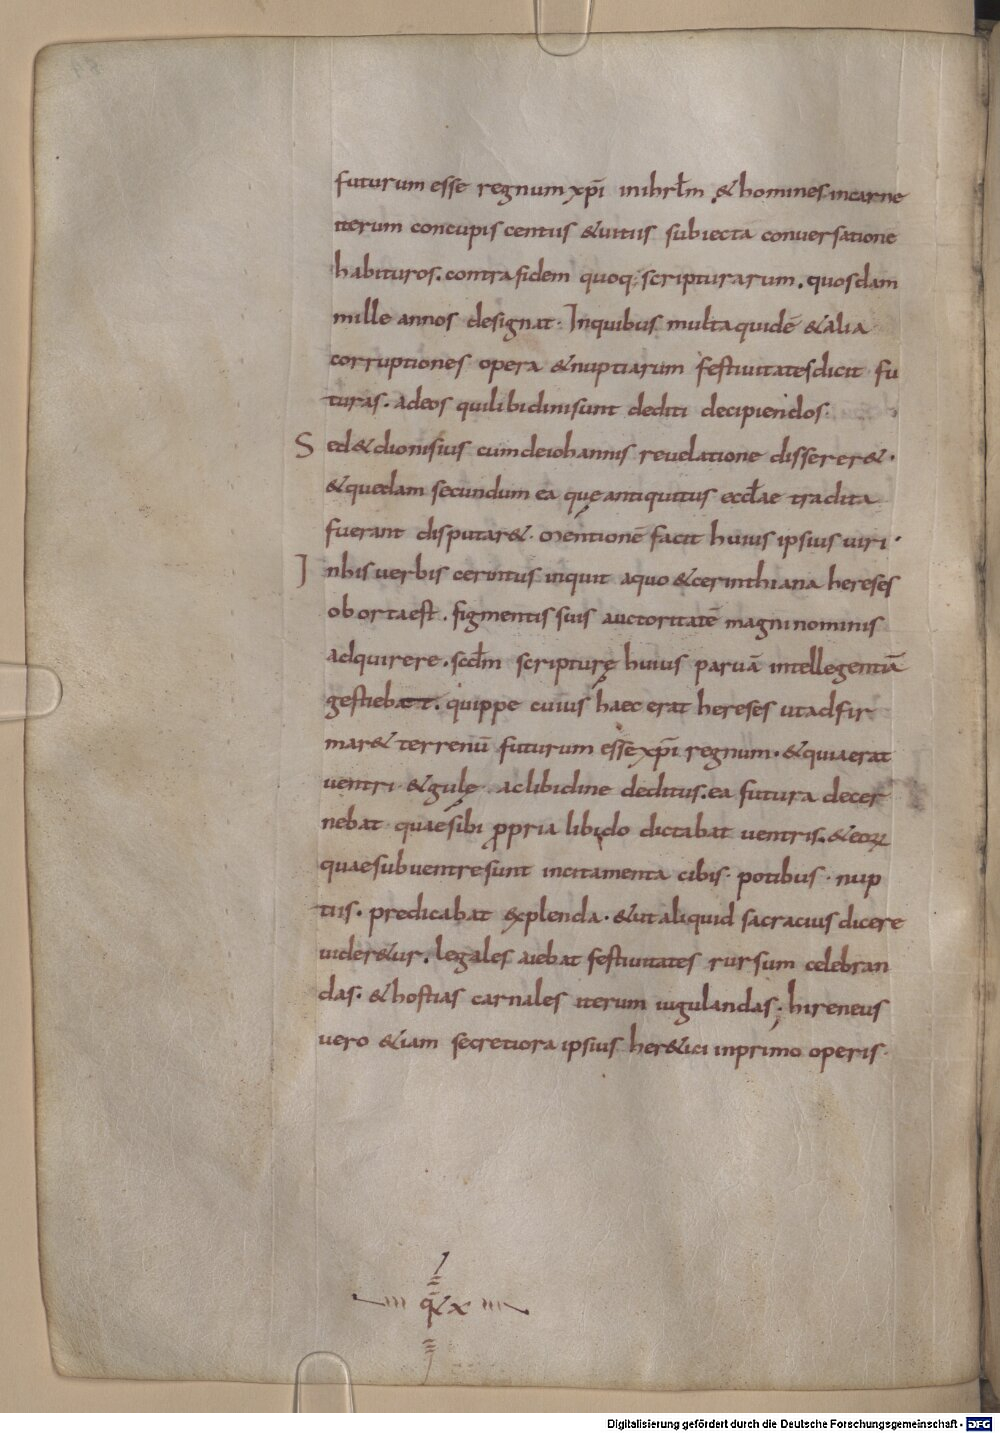 futurum esse regnum xp̄i inihrl̄m & homines incarne
iterum concupiscentiis & uitiis subiecta conuersatione
habituros. contra fidem quoq; scripturarum. quosdam
mille annos designat. Inquibus multa quidē & alia
corruptiones opera & nuptiarum festiuitates dicit fu
turas. ad eos qui libidini sunt dediti decipiendos.
Sed & dionisius cum de iohannis reuelatione disserer&.
& quedam secundum ea que antiquitus eccl̄ae tradita
fuerant disputar&. mentionē facit huius ipsius uiri.
Inhis uerbis cerintus inquit aquo & cerinthiana hereses
oborta est. figmentis suis auctoritatē magni nominis
adquirere. scd̄m scripturę huius paruā intellegentiā
gestiebat. quippe cuius haec erat hereses ut adfir
mar& terrenū futurum esse xp̄i regnum. & quia erat
uentri & gulę ac libidine deditus. ea futura decer
nebat quae sibi ꝓpria libido dictabat uentris. & eoꝝ
quae sub uentre sunt incitamenta cibis. potibus. nup
tiis. predicabat explenda. & ut aliquid sacracius dicere
uider&ur. legales aiebat festiuitates rursum celebran
das. & hostias carnales iterum iugulandas. hireneus
uero &iam secretiora ipsius her&ici inprimo operis.
x
Digitalisierung gefördert durch die Deutsche Forschungsgemeinschaft - DFG